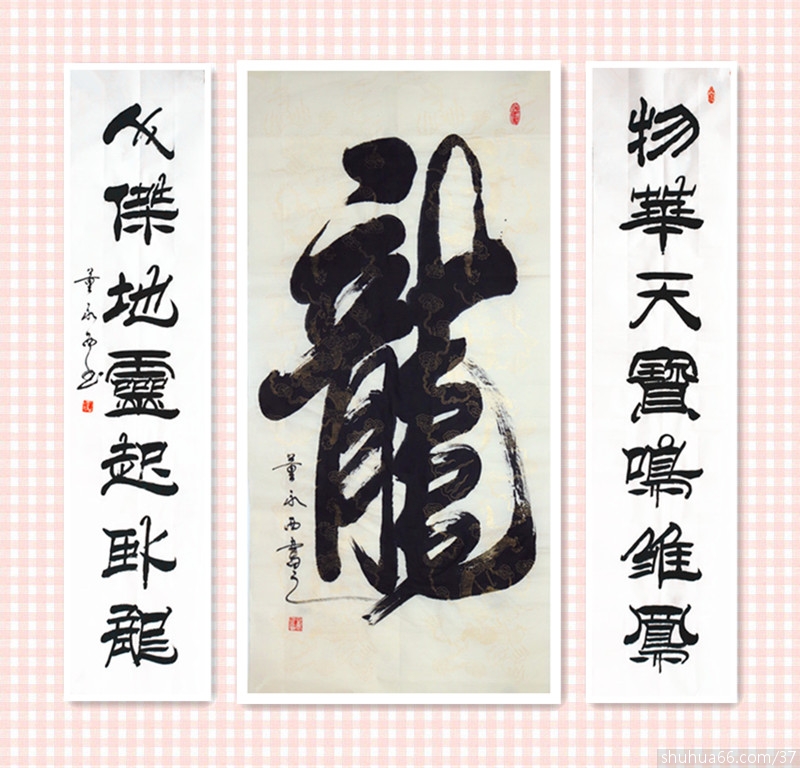 物華天寶鳴雏鳳
龍
董永西書
人傑地靈起臥龍
董永西书
shuhua66.com/37